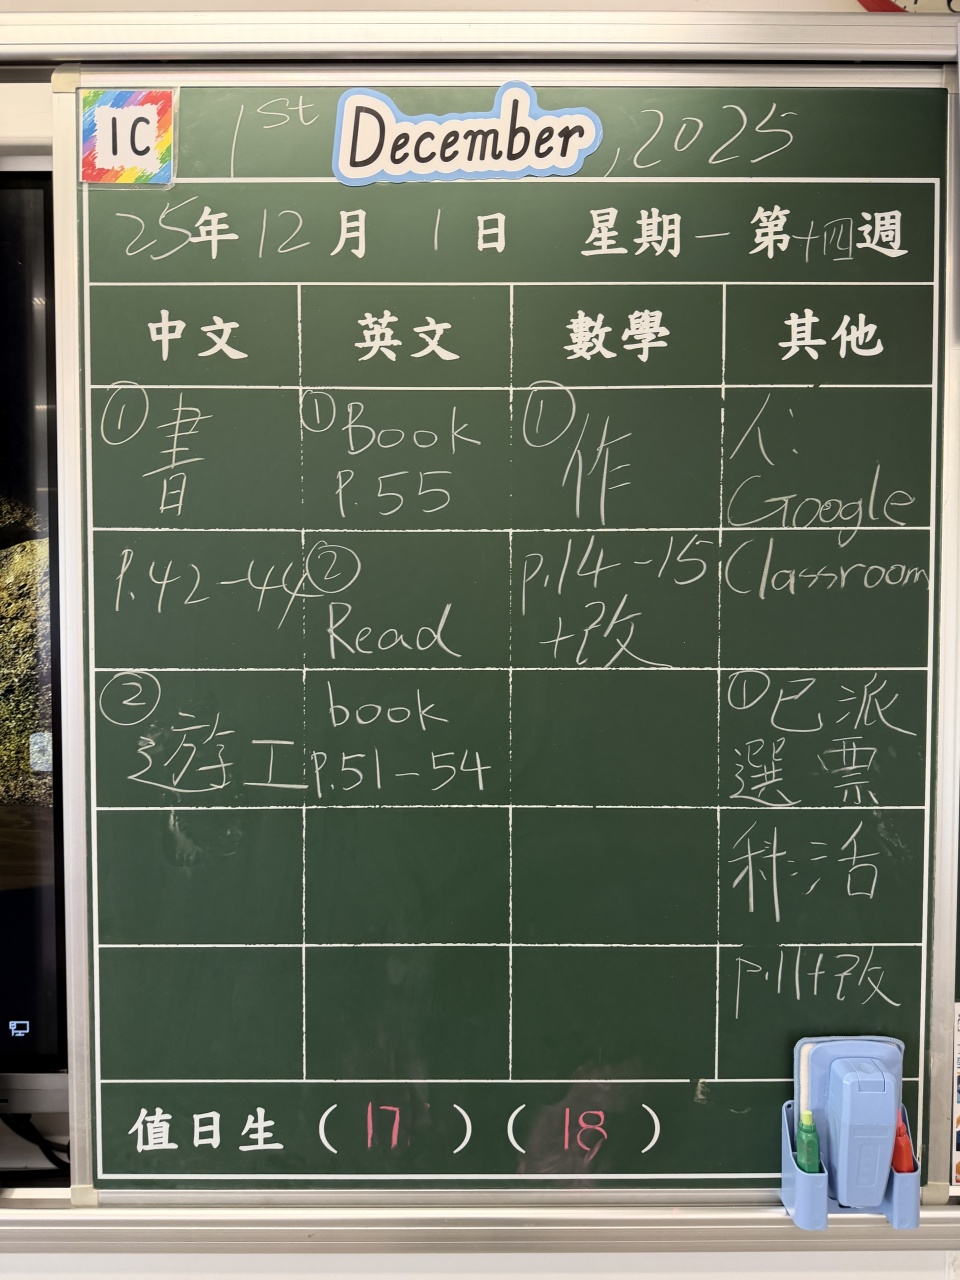 1C
1st December, 2025
25年12月1日 星期一 第十四週
中文 英文 數學 其他
① 書
P.42-44
② 遊工
① Book
P.55
②
Read
book
P.51-54
① 作
p.14-15
+改
人:
Google
Classroom
① 已派
選票
科:活
p.11+改
值日生 ( 17 ) ( 18 )